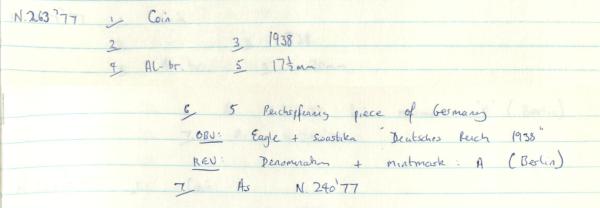 N.263'77 1/ Coin
2/ 3/ 1938
4/ Al-br. 5/ 17½mm
6/ 5 Reichspfennig piece of Germany
OBV: Eagle + swastika "Deutsches Reich 1938"
REV: Denomination + mintmark: A (Berlin)
7/ As N.240'77